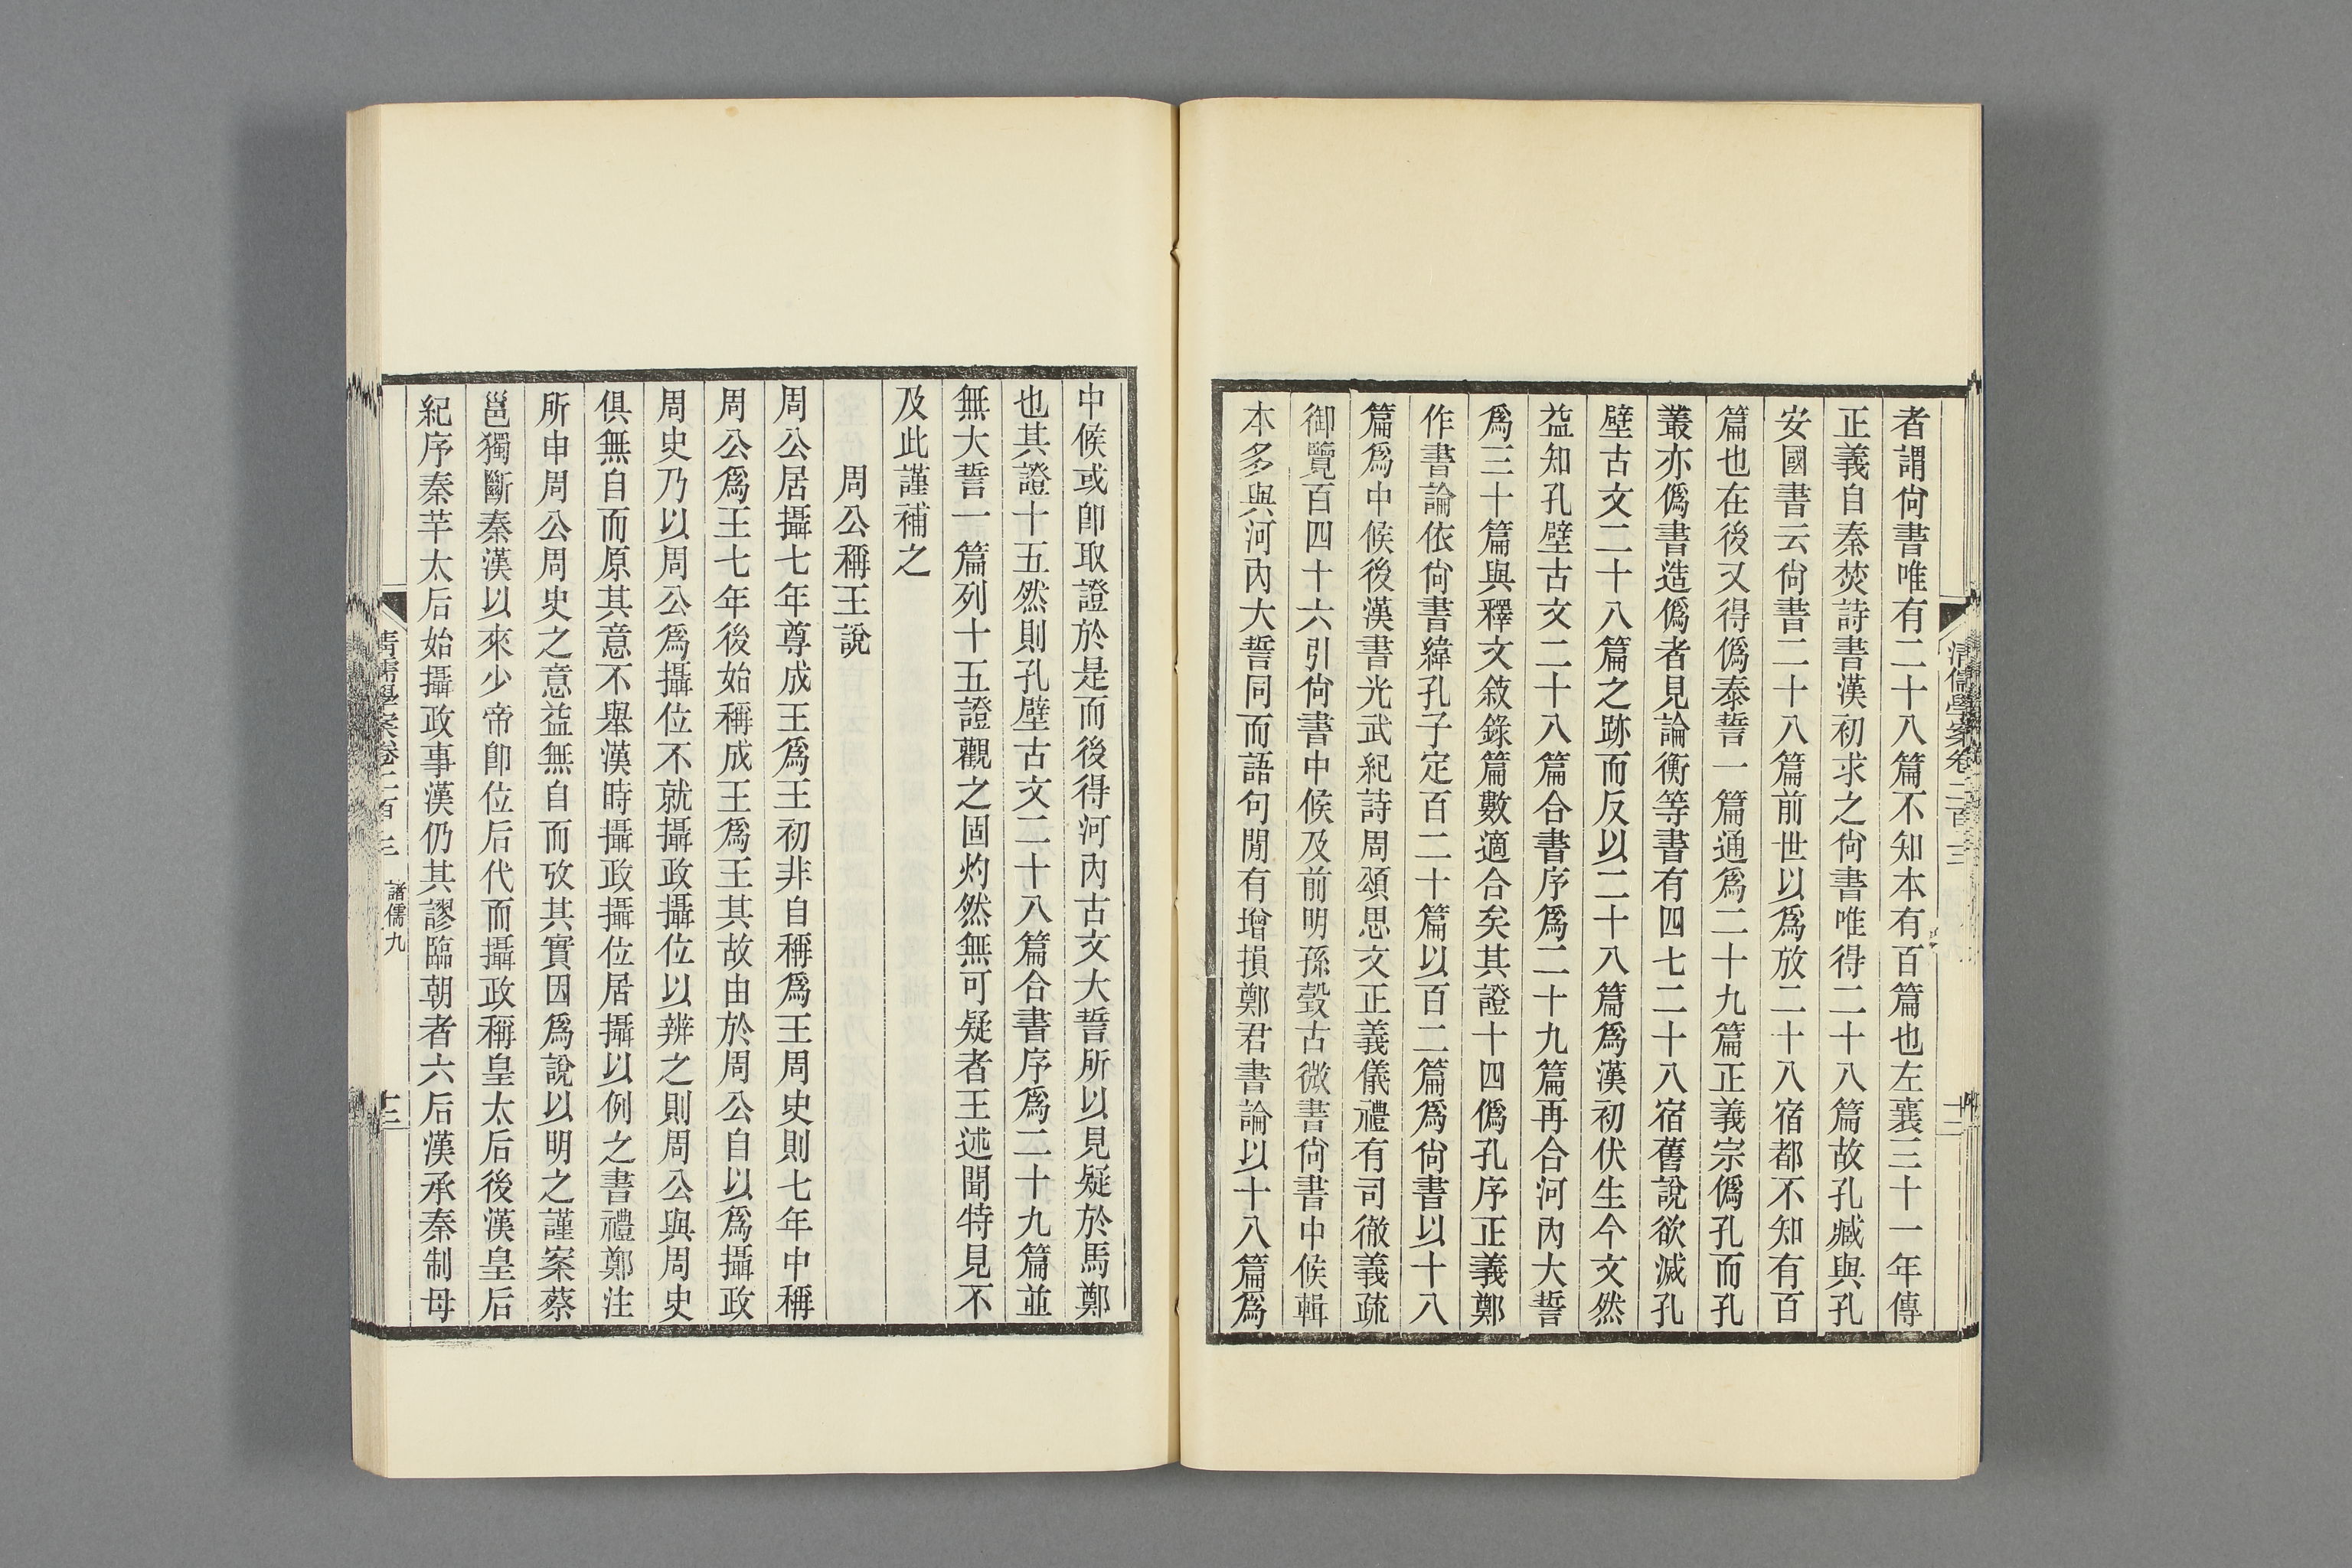 清儒學案卷二百三
者謂尙書唯有二十八篇不知本有百篇也左襄三十一年傳
正義自秦焚詩書漢初求之尙書唯得二十八篇故孔臧與孔
安國書云尙書二十八篇前世以爲放二十八宿都不知有百
篇也在後又得僞泰誓一篇通爲二十九篇正義宗僞孔而孔
叢亦僞書造僞者見論衡等書有四七二十八宿舊說欲滅孔
壁古文二十八篇之跡而反以二十八篇爲漢初伏生今文然
益知孔壁古文二十八篇合書序爲二十九篇再合河內大誓
爲三十篇與釋文敘錄篇數適合矣其證十四僞孔序正義鄭
作書論依尙書緯孔子定百二十篇以百二篇爲尙書以十八
篇爲中候後漢書光武紀詩周頌思文正義儀禮有司徹義疏
御覽百四十六引尙書中候及前明孫瑴古微書尙書中候輯
本多與河內大誓同而語句閒有增損鄭君書論以十八篇爲
中候或卽取證於是而後得河內古文大誓所以見疑於馬鄭
也其證十五然則孔壁古文二十八篇合書序爲二十九篇並
無大誓一篇列十五證觀之固灼然無可疑者王述聞特見不
及此謹補之
周公稱王說
周公居攝七年尊成王爲王初非自稱爲王周史則七年中稱
周公爲王七年後始稱成王爲王其故由於周公自以爲攝政
周史乃以周公爲攝位不就攝政攝位以辨之則周公與周史
俱無自而原其意不舉漢時攝政攝位居攝以例之書禮鄭注
所申周公周史之意益無自而攷其實因爲說以明之謹案蔡
邕獨斷秦漢以來少帝卽位后代而攝政稱皇太后後漢皇后
紀序秦芈太后始攝政事漢仍其謬臨朝者六后漢承秦制母
清儒學案卷二百三
諸儒九
十三